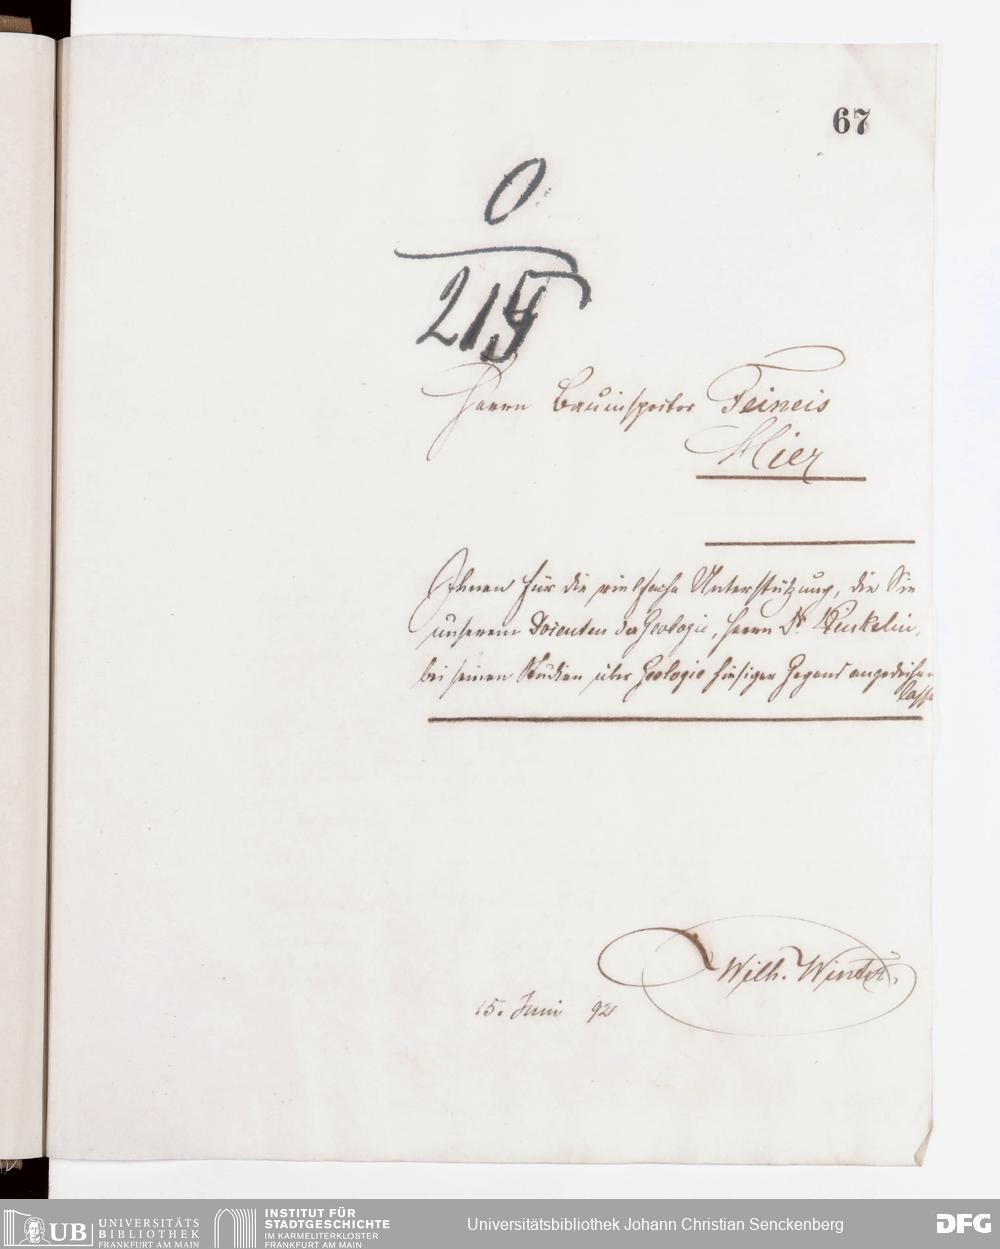 67
0
215
Herrn Bauinspector Feineis
Hier
Ihnen für die vielfache Unterstützung, die Sie
unserem Docenten der Geologie, Herrn Dr. Kinkelin,
bei seinen Studien über Geologie hiesiger Gegend angedeihen
lassen
Wilh. Winter,
15. Juni 92
UB UNIVERSITÄTS
BIBLIOTHEK
FRANKFURT AM MAIN
INSTITUT FÜR
STADTGESCHICHTE
IM KARMELITERKLOSTER
FRANKFURT AM MAIN
Universitätsbibliothek Johann Christian Senckenberg
DFG